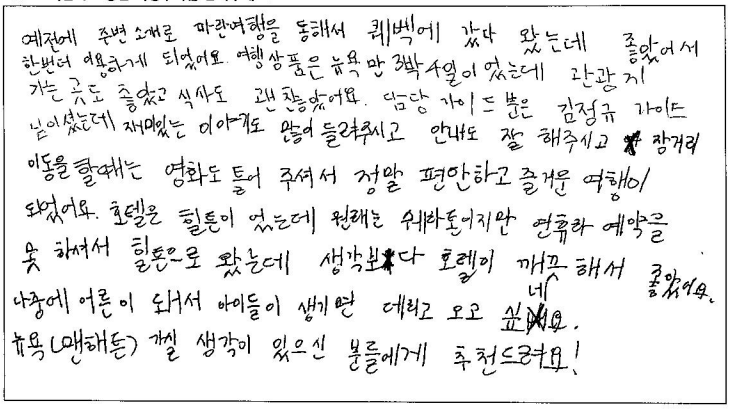 예전에 주변 소개로 파란여행을 통해서 퀘벡에 갔다 왔는데 좋았어서
한번더 이용하게 되었어요. 여행상품은 뉴욕만 3박4일이었는데 관광지
가는 곳도 좋았고 식사도 괜찮았어요. 담당 가이드분은 김정규 가이드
님이셨는데 재미있는 이야기도 많이 들려주시고 안내도 잘 해주시고 장거리
이동을 할때는 영화도 틀어 주셔서 정말 편안하고 즐거운 여행이
되었어요. 호텔은 힐튼이었는데 원래는 쉐라톤이지만 연휴라 예약을
못 하셔서 힐튼으로 왔는데 생각보다 호텔이 깨끗해서 좋았어요.
나중에 어른이 되서 아이들이 생기면 데리고 오고 싶네요.
뉴욕(맨해튼) 가실 생각이 있으신 분들에게 추천드려요!